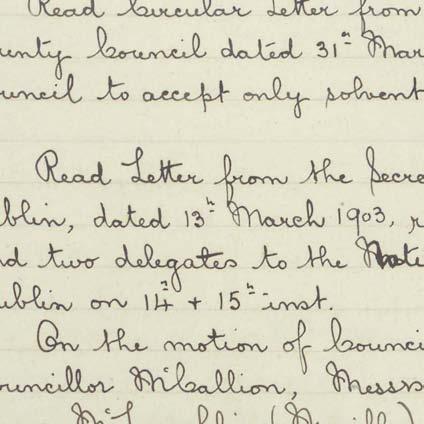 Read Circular Letter from
unty Council dated 31st Mar
uncil to accept only solvent
Read Letter from the Secre
blin, dated 13th March 1903, r
nd two delegates to the Nati
ublin on 14th + 15th inst.
On the motion of Counci
ouncillor McCallion, Messrs